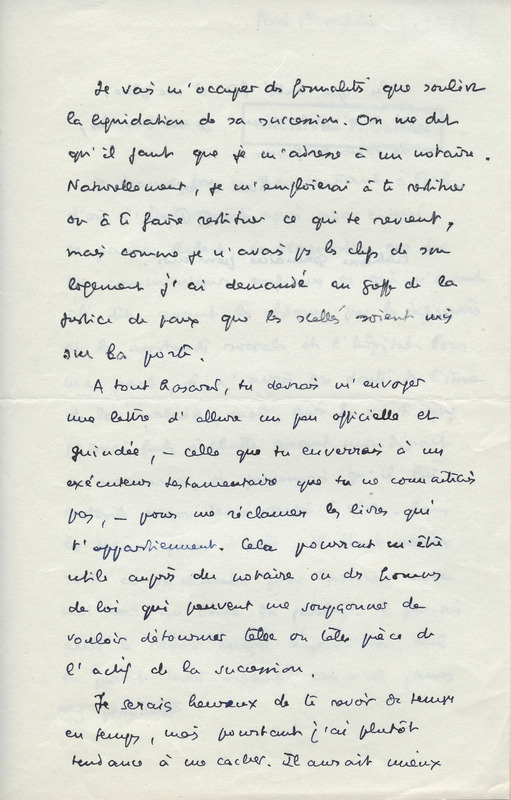 Je vais m'occuper des formalités que soulève
la liquidation de sa succession. On me dit
qu'il faut que je m'adresse à un notaire.
Naturellement, je m'emploierai à te restituer
ou à te faire restituer ce qui te revient,
mais comme je n'avais pas les clefs de son
logement j'ai demandé au greffe de la
justice de paix que les scellés soient mis
sur la porte.
A tout hasard, tu devrais m'envoyer
une lettre d'allure un peu officielle et
guindée, – celle que tu enverrais à un
exécuteur testamentaire que tu ne connaîtrais
pas, – pour me réclamer les livres qui
t'appartiennent. Cela pourrait m'être
utile auprès du notaire ou des hommes
de loi qui peuvent me soupçonner de
vouloir détourner telle ou telle pièce de
l'actif de la succession.
Je serais heureux de te revoir de temps
en temps, mais pourtant j'ai plutôt
tendance à me cacher. Il aurait mieux